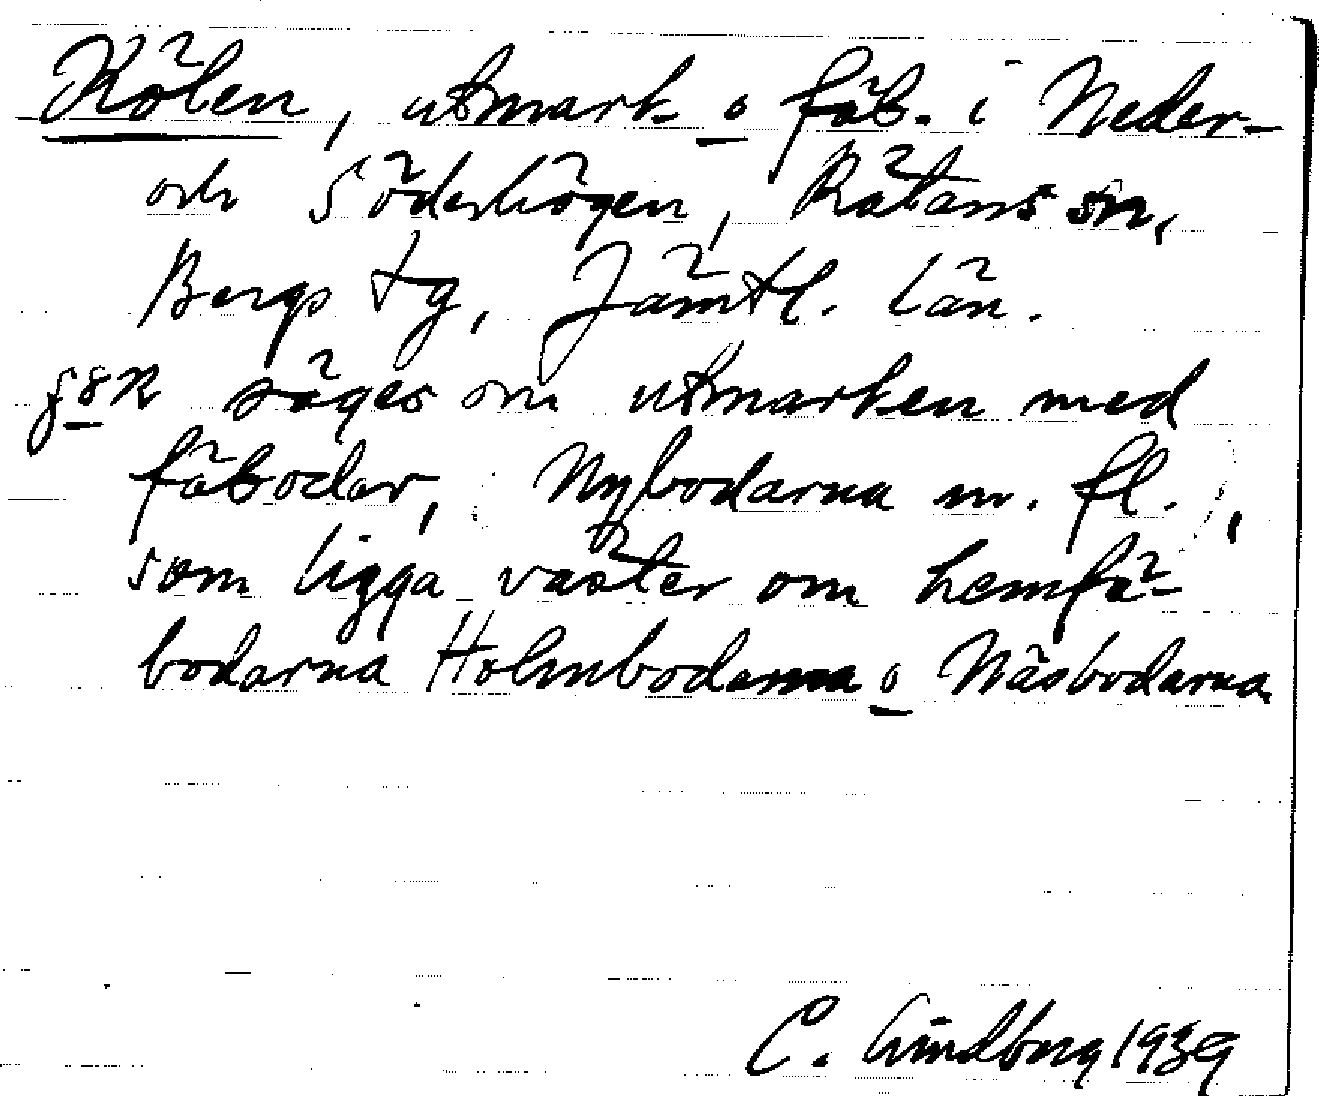 Kölen, utmark o fäb. i Neder-
och Söderhögen, Rätans sn,
Bergs tg, Jämtl. län.
säges om utmarken med
fäbodar, Nybodarna m. fl.,
som ligga väster om hemfä-
bodarna Holmbodarna o Näsbodarna
C. Lindberg 1939